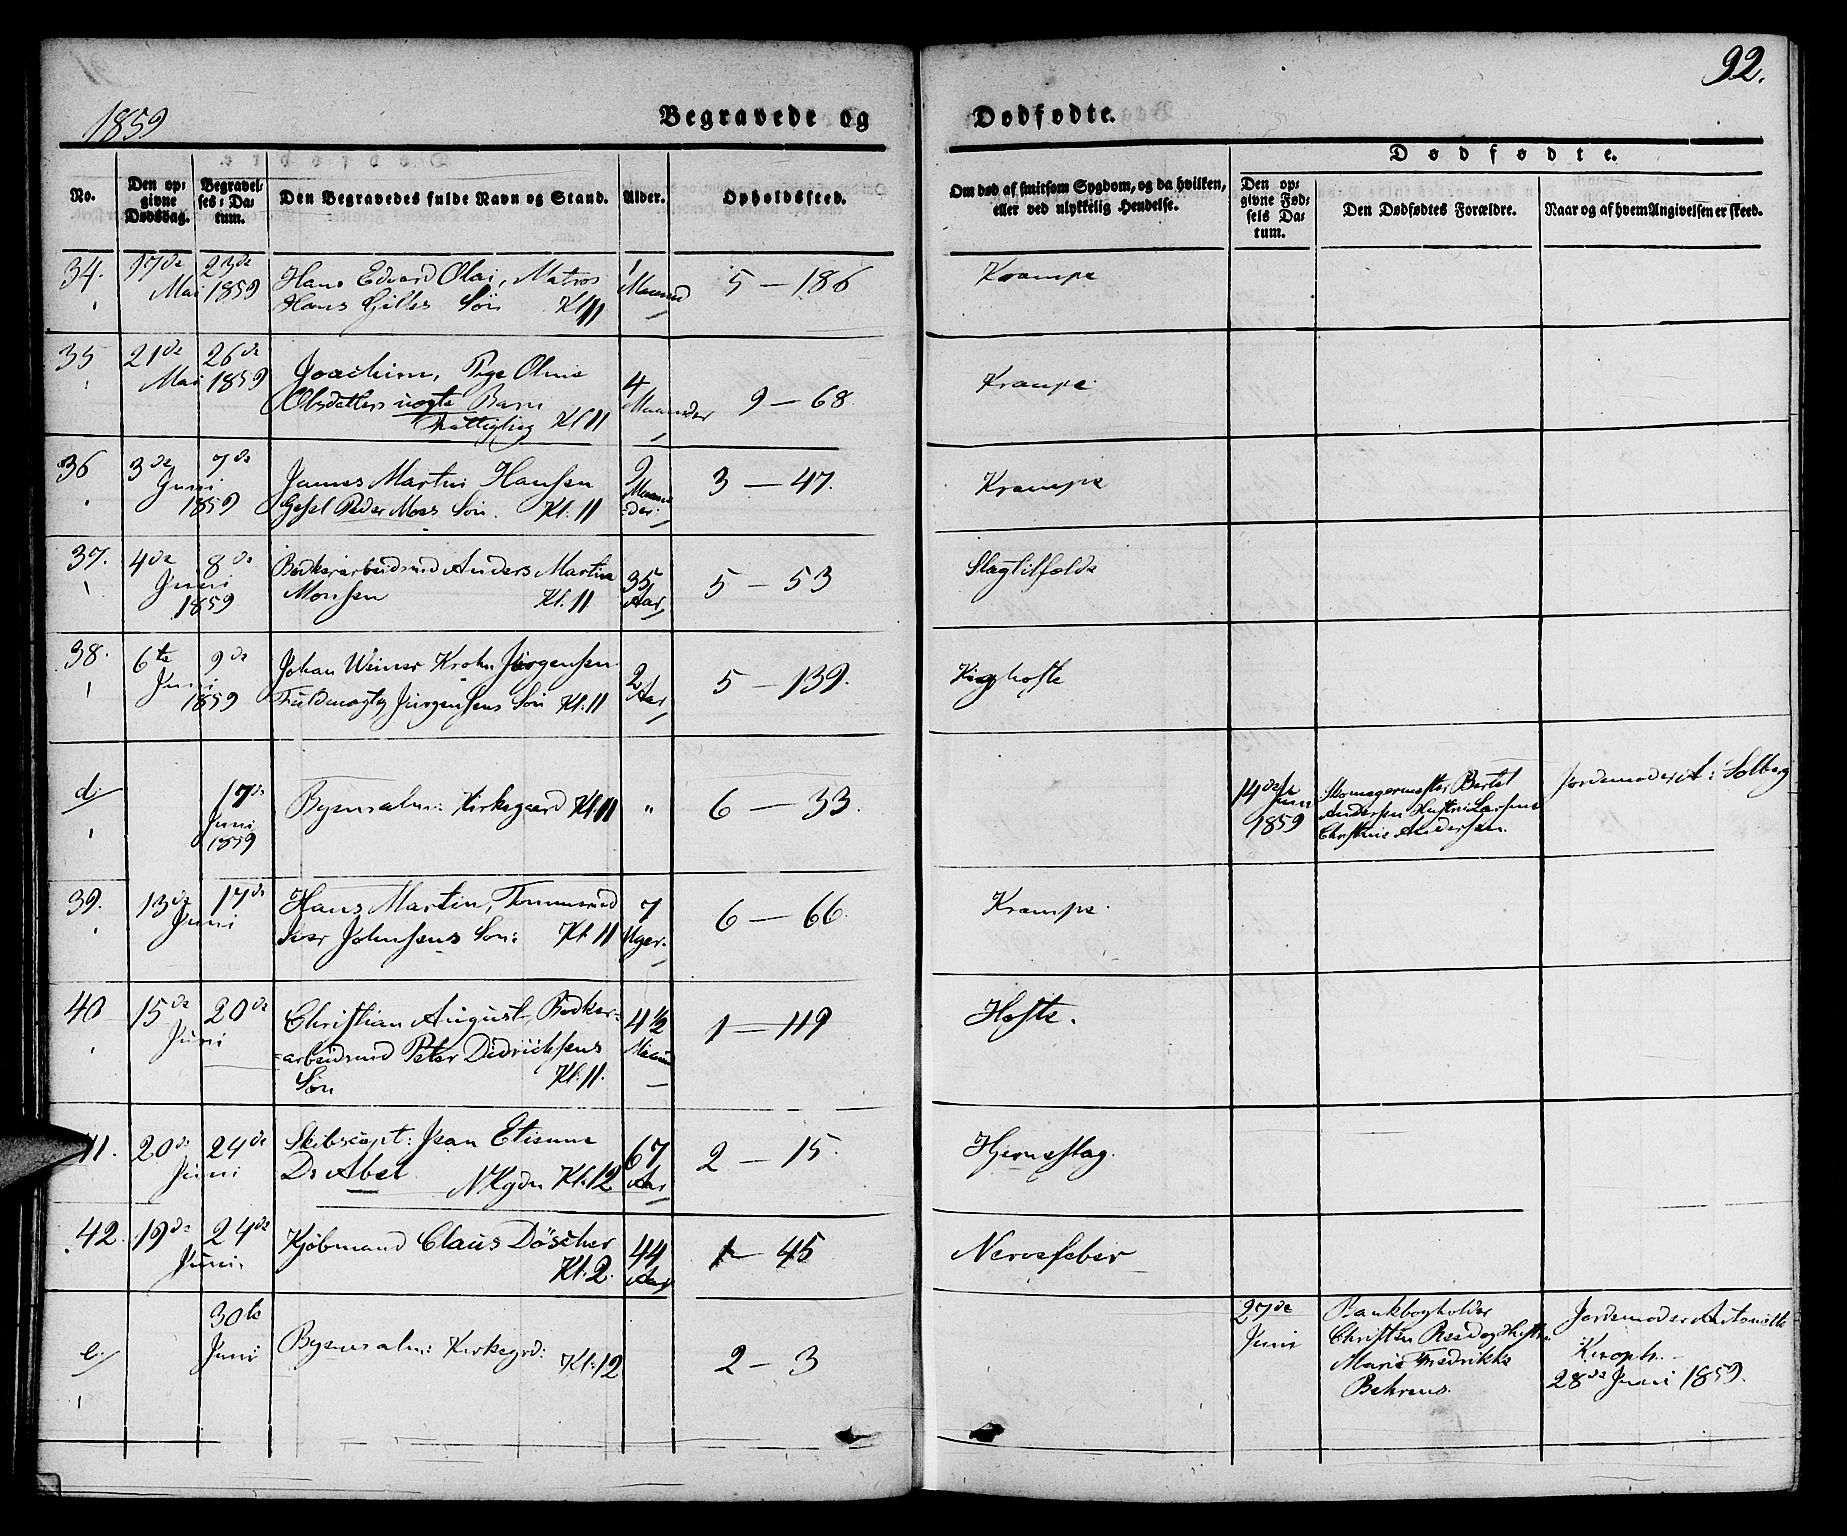 92.
1859
Begravede og Dødfødte.
Dødfødte.
No.
Den opgivne Dødsdag.
Begravelses-Datum.
Den Begravedes fulde Navn og Stand.
Alder.
Opholdssted.
Om død af smitsom Sygdom, og da hvilken, eller ved ulykkelig Hendelse.
Den opgivne Fødsels Datum.
Den Dødfødtes Forældre.
Naar og af hvem Angivelsen er skeed.
34. 17de Mai 23de 1859 Hans Edvard Olai, Matros 1 Maaned 5 — 186 Krampe
Hans Gilles Søn Kl 11
35 21de Mai 26de 1859 Joachim, Pige Oline 4 Maaneder 9 — 68 Krampe
Olsdatters uægte Barn
Fattiglig Kl 11
36 3de Juni 7de 1859 Martin Hansen 9 Maaneder 3 — 47. Krampe
Peder Moes Søn. Kl: 11
37. 4de Juni 8de 1859 Bødkerarbeidsmd Anders Martin 35 Aar 5 — 53 Slagtilfælde
Monsen Kl. 11
38. 6te Juni 9de 1859 Johan Weiner Krohn Jürgensen 2 Aar 5 — 139. Kighoste
Fuldmægtig Jürgensens Søn Kl. 11
d. 17de Juni 1859 Byens alm: Kirkegaard Kl 11 " 6 — 33. 14de Juni 1859 Skomagermester Bertel
Andersen Hustru
Andersen.
Jordemoder A: Solberg
39. 13de Juni 17de Hans Martin, Tømmermd 7 Uger 6 — 66. Krampe
Iver Johnsens Søn: Kl. 11
40 15de Juni 20de Christian August, Bødker- 4 1/2 Maaned 1 — 119 Hoste.
-arbeidsmd Peter Didrichsens
Søn Kl. 11.
41. 20de Juni 24de Skibscapt: Jean Etienne 67 Aar 2 — 15. Hjerneslag.
D: Abel Kl: 12
42. 19de Juni 24de Kjøbmand Claus Döscher 44 Aar 1 — 45 Nervefeber
Kl. 2.
e. 30te Juni Byens alm: Kirkegrd: Kl: 12 2 — 3 27de Juni Bankbogholder
Christen Hustru
Marie Fredrikke
Behrens.
Jordemoder
28de Juni 1859.